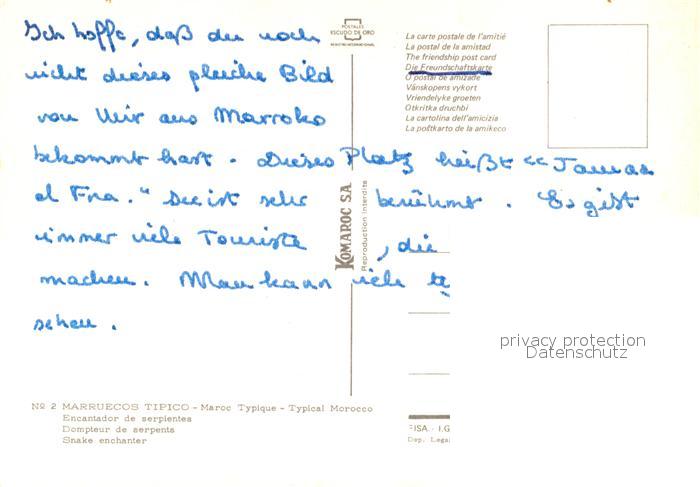 Ich hoffe, daß du noch
nicht dieses pleiche Bild
von Mir aus Marroko
bekommt hast. Dieses Platz heißt "Jamaa
el Fna." Sie ist sehr berühmt. Es gist
immer viele Touriste, die
machen. Man kann viele
sehen.
POSTALES
ESCUDO DE ORO
REGISTRO INTERNACIONAL
La carte postale de l'amitié
La postal de la amistad
The friendship post card
Die Freundschaftskarte
O postal de amizade
Vänskopens vykort
Vriendelyke groeten
Otkritka druchbi
La cartolina dell'amicizia
La poŝtkarto de la amikeco
KOMAROC S.A.
Reproduction interdite
privacy protection
Datenschutz
Nº 2 MARRUECOS TIPICO - Maroc Typique - Typical Morocco
Encantador de serpientes
Dompteur de serpents
Snake enchanter
FISA. - I.G
Dep. Legal